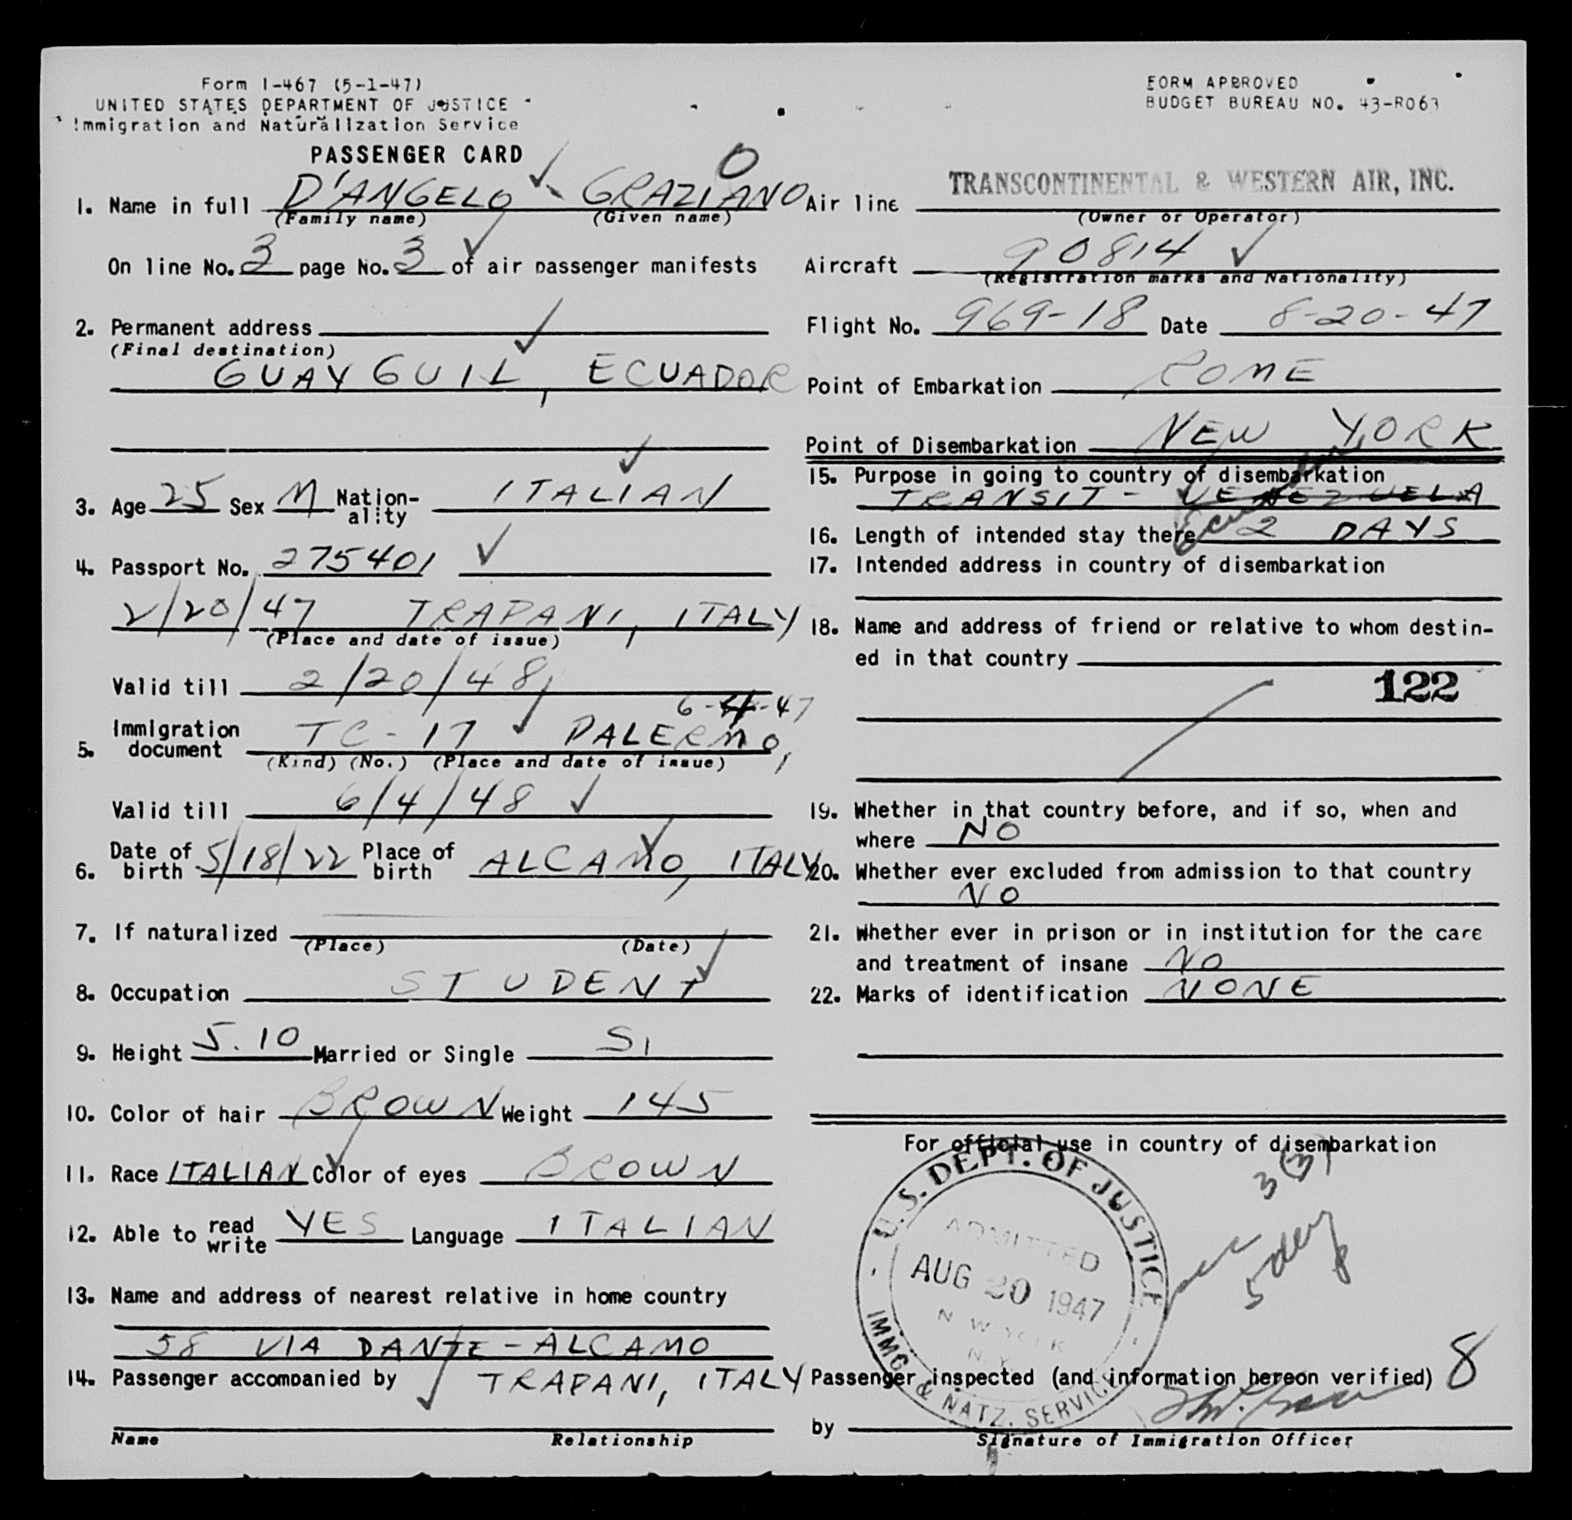 Form I-467 (5-1-47)
UNITED STATES DEPARTMENT OF JUSTICE
Immigration and Naturalization Service
FORM APPROVED
BUDGET BUREAU NO. 43-R063
PASSENGER CARD
O
1. Name in full D'ANGELO GRAZIANO
(Family name) (Given name)
On line No. 3 page No. 3 of air passenger manifests
2. Permanent address
(Final destination)
GUAYGUIL, ECUADOR
3. Age 25 Sex M Nation-ality ITALIAN
4. Passport No. 275401
2/20/47 TRAPANI, ITALY
(Place and date of issue)
Valid till 2/20/48
6-4-47
5. Immigration document TC-17 PALERMO,
(Kind) (No.) (Place and date of issue)
Valid till 6/4/48
6. Date of birth 5/18/22 Place of birth ALCAMO, ITALY
7. If naturalized
(Place) (Date)
8. Occupation STUDENT
9. Height 5.10 Married or Single SI
10. Color of hair BROWN Weight 145
11. Race ITALIAN Color of eyes BROWN
12. Able to read write YES Language ITALIAN
13. Name and address of nearest relative in home country
58 VIA DANTE - ALCAMO
14. Passenger accompanied by TRAPANI, ITALY
Name Relationship
TRANSCONTINENTAL & WESTERN AIR, INC.
Air line
(Owner or Operator)
Aircraft 90814
(Registration marks and Nationality)
Flight No. 969-18 Date 8-20-47
Point of Embarkation ROME
Point of Disembarkation NEW YORK
15. Purpose in going to country of disembarkation
TRANSIT - VENEZUELA
Ecuador
16. Length of intended stay there 2 DAYS
17. Intended address in country of disembarkation
18. Name and address of friend or relative to whom destin-
ed in that country
122
19. Whether in that country before, and if so, when and
where NO
20. Whether ever excluded from admission to that country
NO
21. Whether ever in prison or in institution for the care
and treatment of insane NO
22. Marks of identification NONE
For official use in country of disembarkation
3(3)
5 day
U.S. DEPT. OF JUSTICE
ADMITTED
AUG 20 1947
NEW YORK
N.Y.
IMMG. & NATZ. SERVICE
Passenger inspected (and information hereon verified) 8
by
Signature of Immigration Officer